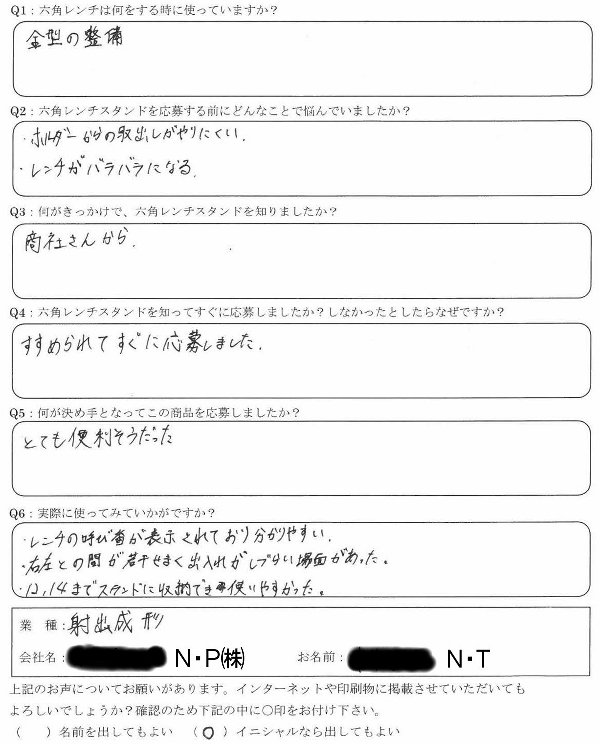 Q1：六角レンチは何をする時に使っていますか？
金型の整備
Q2：六角レンチスタンドを応募する前にどんなことで悩んでいましたか？
・ホルダーからの取出しがやりにくい．
・レンチがバラバラになる
Q3：何がきっかけで、六角レンチスタンドを知りましたか？
商社さんから．
Q4：六角レンチスタンドを知ってすぐに応募しましたか？しなかったとしたらなぜですか？
すすめられてすぐに応募しました．
Q5：何が決め手となってこの商品を応募しましたか？
とても便利そうだった
Q6：実際に使ってみていかがですか？
・レンチの呼び番が表示されており分かりやすい．
・右左との間が若干せまく出入れがしづらい場面があった。
・12，14までスタンドに収納でき使いやすかった。
業　種：射出成形
会社名： N・P㈱ お名前： N・T
上記のお声についてお願いがあります。インターネットや印刷物に掲載させていただいても
よろしいでしょうか？確認のため下記の中に〇印をお付け下さい。
（　　）名前を出してもよい　（〇）イニシャルなら出してもよい